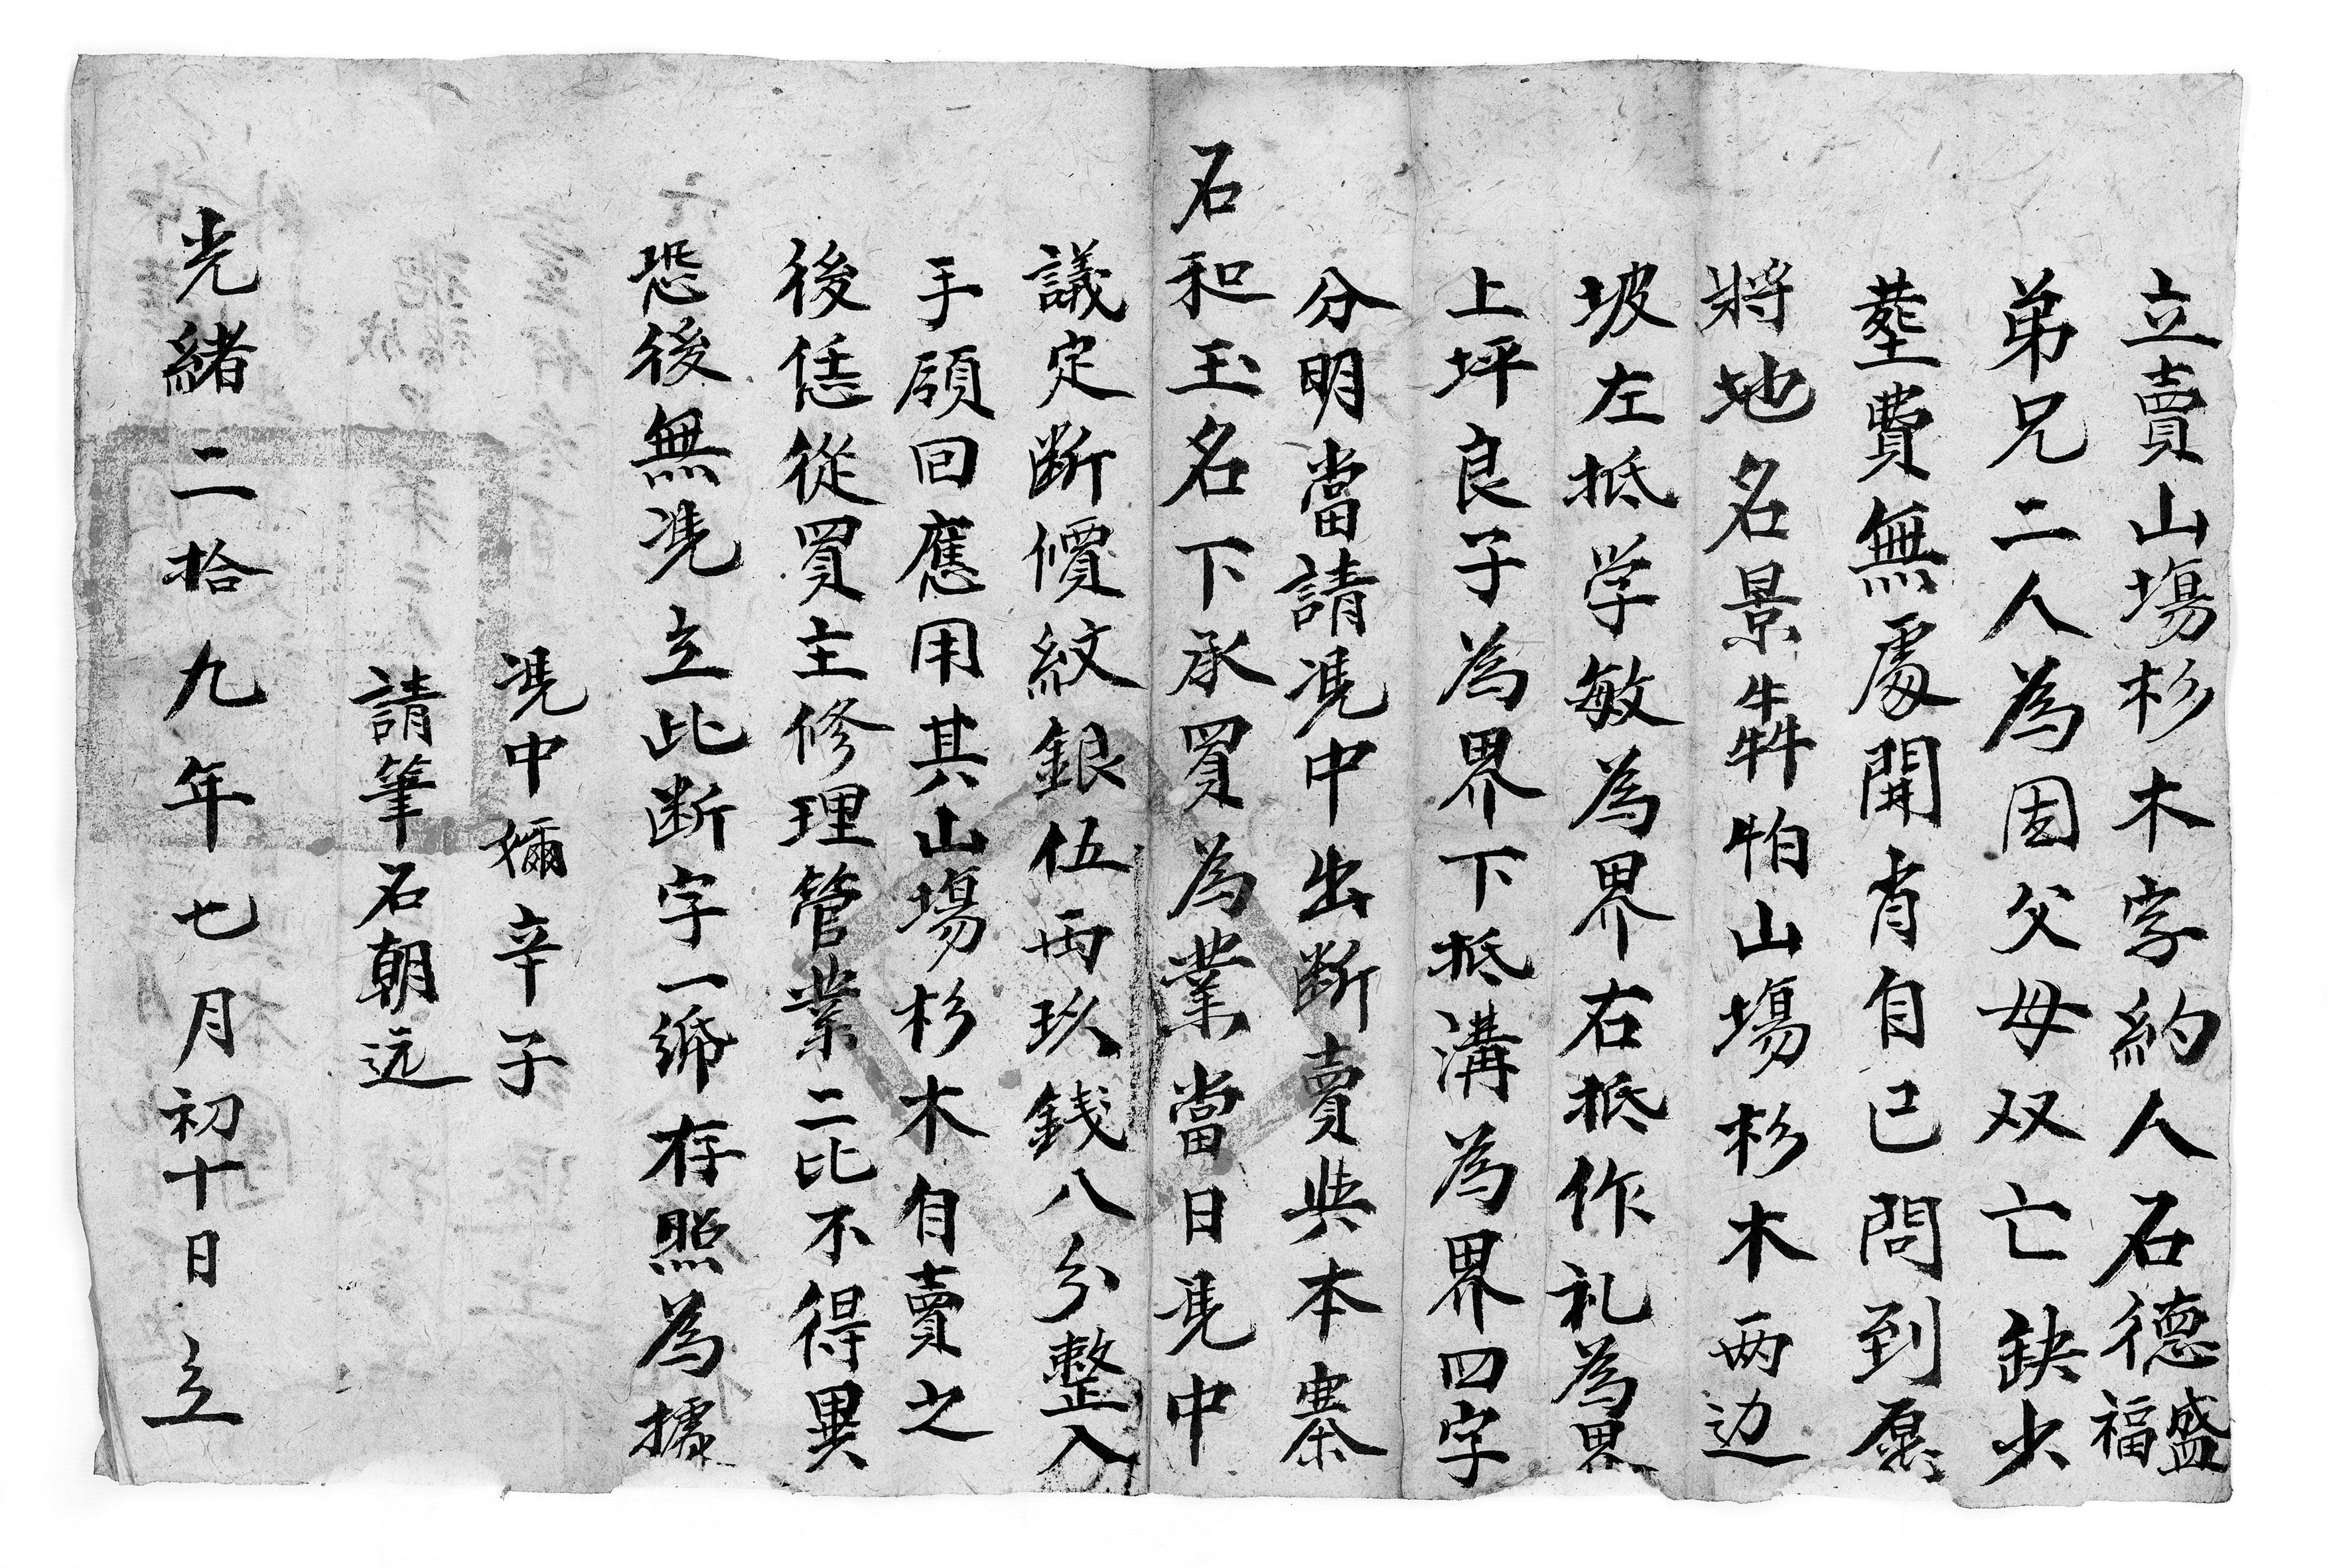 立賣山塲杉木字約人石德盛福
弟兄二人為因父母双亡缺少
塟費無處開肖自己問到愿
將地名景犇牰山塲杉木两边
坡左抵学敏為界右抵作礼為界
上坪良子為界下抵溝為界四字
分明當請凴中出断賣與本寨
石和玉名下承買為業當日凴中
議定断價紋銀伍両玖錢八分整入
手領回應用其山塲杉木自賣之
後恁從買主修理管業二比不得異
恐後無凴立此断字一㡧存照為據
凴中㺒辛子
請筆石朝远
光緒二拾九年七月初十日立